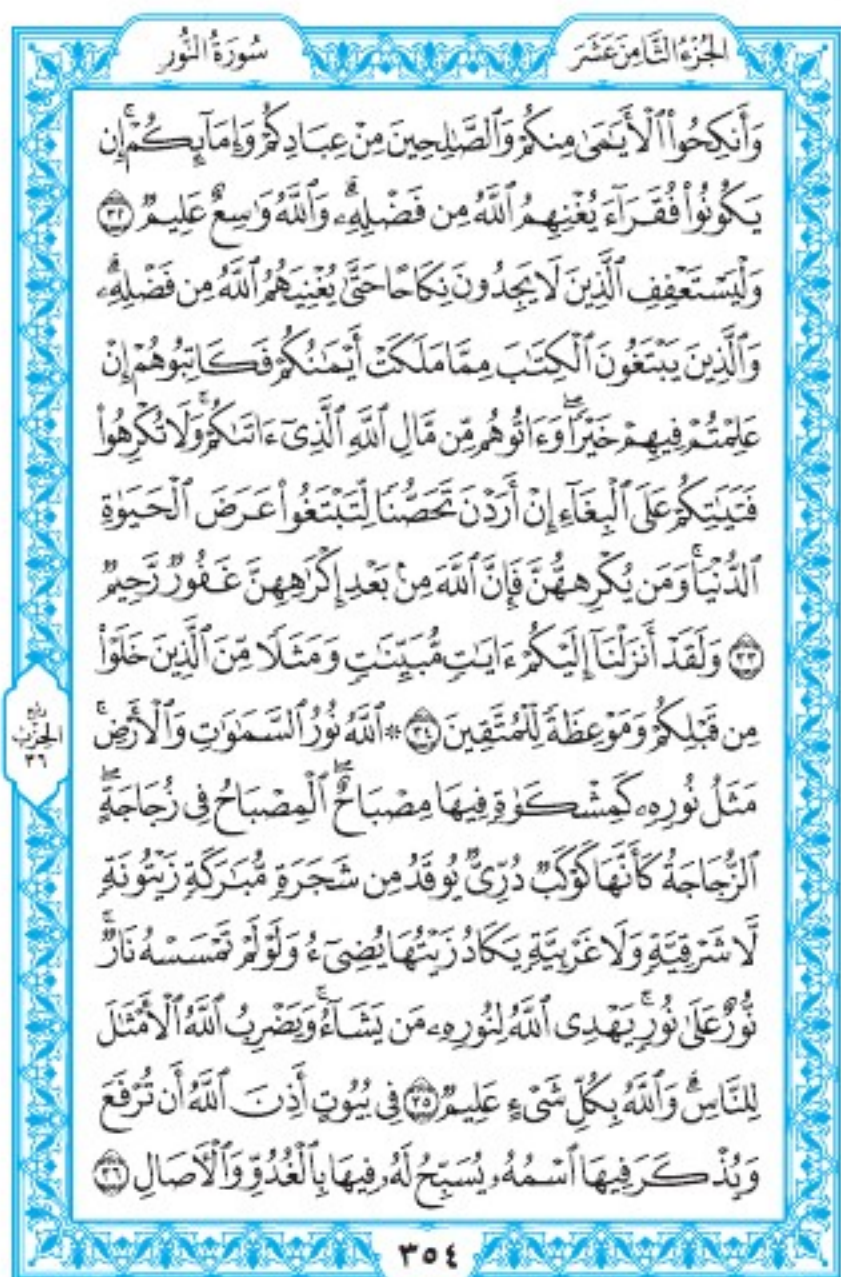 الجُزْءُ الثَّامِنَ عَشَرَ
سُورَةُ النُّورِ
وَأَنكِحُواْ ٱلْأَيَٰمَىٰ مِنكُمْ وَٱلصَّٰلِحِينَ مِنْ عِبَادِكُمْ وَإِمَآئِكُمْۚ إِن
يَكُونُواْ فُقَرَآءَ يُغْنِهِمُ ٱللَّهُ مِن فَضْلِهِۦۗ وَٱللَّهُ وَٰسِعٌ عَلِيمٌ ٣٢
وَلْيَسْتَعْفِفِ ٱلَّذِينَ لَا يَجِدُونَ نِكَاحًا حَتَّىٰ يُغْنِيَهُمُ ٱللَّهُ مِن فَضْلِهِۦۗ
وَٱلَّذِينَ يَبْتَغُونَ ٱلْكِتَٰبَ مِمَّا مَلَكَتْ أَيْمَٰنُكُمْ فَكَاتِبُوهُمْ إِنْ
عَلِمْتُمْ فِيهِمْ خَيْرًاۖ وَءَاتُوهُم مِّن مَّالِ ٱللَّهِ ٱلَّذِىٓ ءَاتَىٰكُمْۚ وَلَا تُكْرِهُواْ
فَتَيَٰتِكُمْ عَلَى ٱلْبِغَآءِ إِنْ أَرَدْنَ تَحَصُّنًا لِّتَبْتَغُواْ عَرَضَ ٱلْحَيَوٰةِ
ٱلدُّنْيَاۚ وَمَن يُكْرِههُّنَّ فَإِنَّ ٱللَّهَ مِنۢ بَعْدِ إِكْرَٰهِهِنَّ غَفُورٌ رَّحِيمٌ
٣٣ وَلَقَدْ أَنزَلْنَآ إِلَيْكُمْ ءَايَٰتٍ مُّبَيِّنَٰتٍ وَمَثَلًا مِّنَ ٱلَّذِينَ خَلَوْاْ
مِن قَبْلِكُمْ وَمَوْعِظَةً لِّلْمُتَّقِينَ ٣٤ ۞ ٱللَّهُ نُورُ ٱلسَّمَٰوَٰتِ وَٱلْأَرْضِۚ
مَثَلُ نُورِهِۦ كَمِشْكَوٰةٍ فِيهَا مِصْبَاحٌۖ ٱلْمِصْبَاحُ فِى زُجَاجَةٍۖ
ٱلزُّجَاجَةُ كَأَنَّهَا كَوْكَبٌ دُرِّىٌّ يُوقَدُ مِن شَجَرَةٍ مُّبَٰرَكَةٍ زَيْتُونَةٍ
لَّا شَرْقِيَّةٍ وَلَا غَرْبِيَّةٍ يَكَادُ زَيْتُهَا يُضِىٓءُ وَلَوْ لَمْ تَمْسَسْهُ نَارٌۚ
نُّورٌ عَلَىٰ نُورٍۗ يَهْدِى ٱللَّهُ لِنُورِهِۦ مَن يَشَآءُۚ وَيَضْرِبُ ٱللَّهُ ٱلْأَمْثَٰلَ
لِلنَّاسِۗ وَٱللَّهُ بِكُلِّ شَىْءٍ عَلِيمٌ ٣٥ فِى بُيُوتٍ أَذِنَ ٱللَّهُ أَن تُرْفَعَ
وَيُذْكَرَ فِيهَا ٱسْمُهُۥ يُسَبِّحُ لَهُۥ فِيهَا بِٱلْغُدُوِّ وَٱلْءَاصَالِ ٣٦
ربع
الحزب
٣٦
٣٥٤